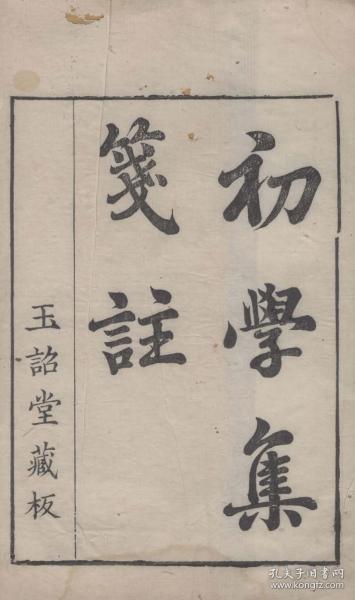 初學集
箋註
玉詔堂藏板
孔夫子旧书网
www.kongfz.com